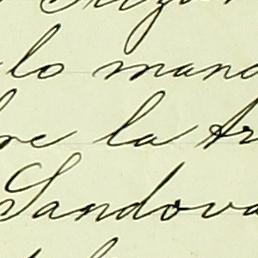 lo mand
re la Ar
Sandova